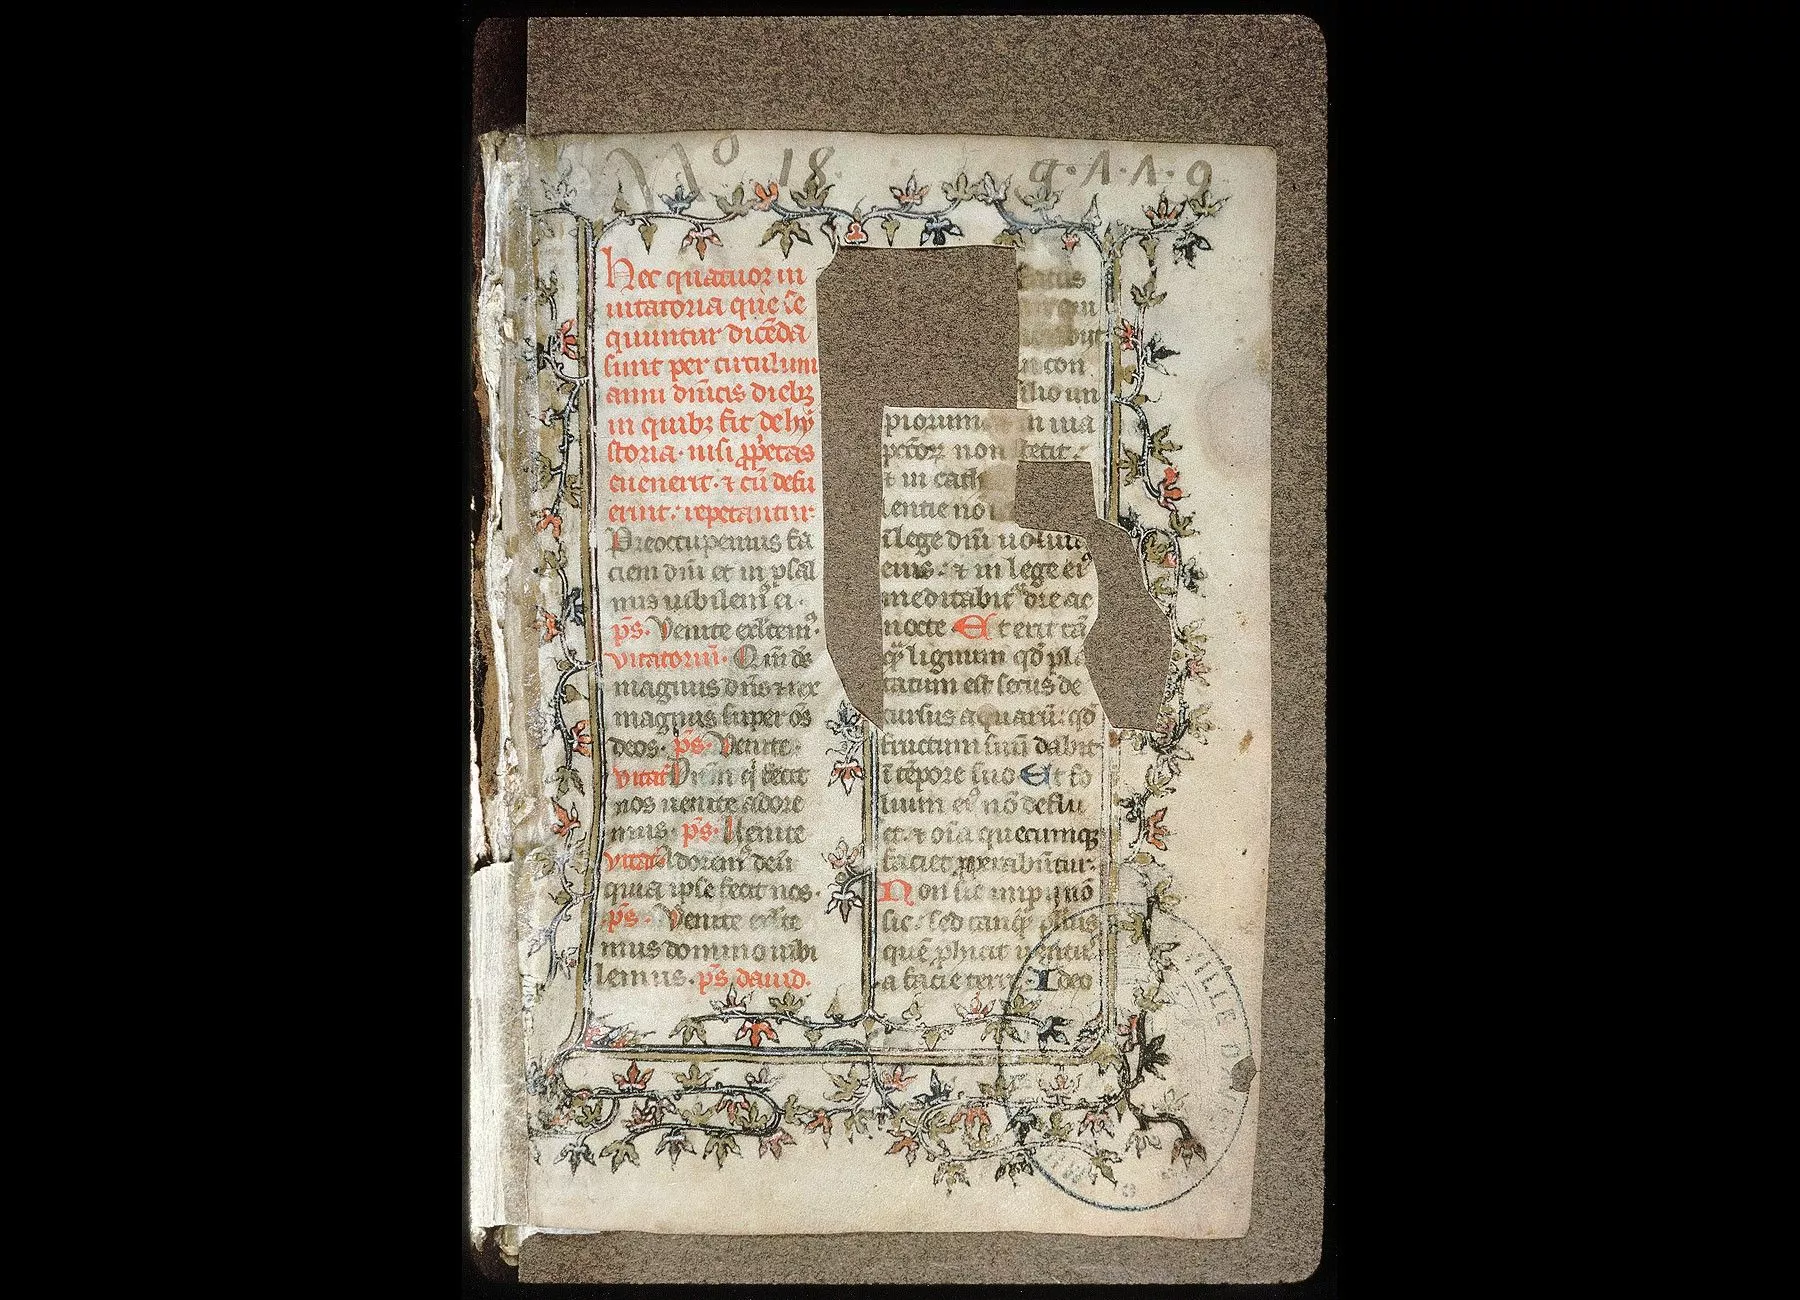 No 18. a.Λ.Λ.9
Hec quatuor in
uitatoria que se
quuntur dicēda
sunt per circulum
anni dn̄icis diebꝫ
in quibꝫ fit de hy
storia. nisi ꝓpetas
euenerit. ⁊ cū defu
erint. repetantur.
Preoccupemus fa
ciem dn̄i et in psal
mis iubilemꝰ ei.
ps̄. Venite exl̄temꝰ.
vitatoriū. Qm̄ ds̄
magnus dn̄s ⁊ rex
magnus super os̄
deos. ps̄. Venite.
vitat̄ Dn̄m q̄ fecit
nos uenite adore
mus. ps̄. Venite
vitat̄ Adoremꝰ deū
quia ipse fecit nos.
ps̄. Venite exl̄te
mus domino iubi
lemus. ps̄ dauid.
con
silio im
piorum in uia
pctōꝝ non stetit.
⁊ in cath
entie no
ī lege dn̄i uolūt
eius. ⁊ in lege eiꝰ
meditabit᷑ die ac
nocte Et erit tā
q̄ lignum qd̄ plā
tatum est secus de
cursus aquarū. qd̄
fructum suū dabit
ī tēpore suo Et fo
lium eiꝰ nō deflu
et. ⁊ oīa quecumqꝫ
faciet ꝓsperabūtur.
Non sic impij nō
sic. sed tanq̄ puluis
quē ꝓhicit uentus
a facie terre. Ideo
VILLE D